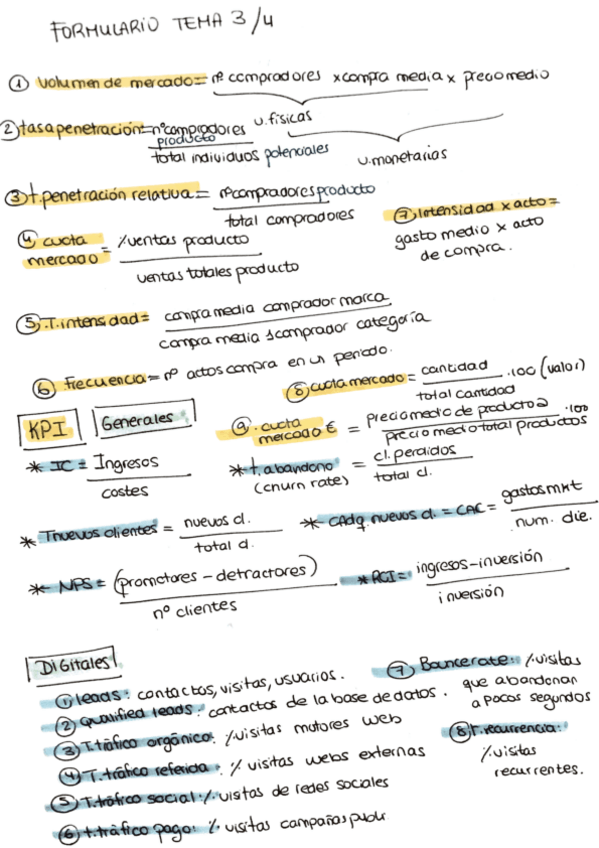 FORMULARIO TEMA 3/4
① Volumen de mercado = nº compradores x compra media x precio medio
u. físicas
u. monetarias
② tasa penetración = nº compradores producto / total individuos potenciales
③ t. penetración relativa = nº compradores producto / total compradores
⑦ Intensidad x acto = gasto medio x acto de compra.
④ cuota mercado = % ventas producto / ventas totales producto
⑤ T. intensidad = compra media comprador marca / compra media 1 comprador categoría
⑥ Frecuencia = nº actos compra en un periodo.
⑧ cuota mercado = cantidad / total cantidad · 100 (valor)
KPI Generales
⑨ cuota mercado € = precio medio de producto a / precio medio total productos · 100
* IC = Ingresos / costes
* t. abandono (churn rate) = cl. perdidos / total cl.
* T nuevos clientes = nuevos cl. / total cl.
* CAdq. nuevos cl. = CAC = gastos mkt / num. clie.
* NPS = (promotores - detractores) / nº clientes
* ROI = ingresos - inversión / inversión
DIGitales
① leads: contactos, visitas, usuarios.
② Qualified leads: contactos de la base de datos.
③ T. tráfico orgánico: % visitas motores web
④ T. tráfico referida: % visitas webs externas
⑤ T. tráfico social: % visitas de redes sociales
⑥ t. tráfico pago: % visitas campañas publi
⑦ Bounce rate: % visitas
que abandonan
a pocos segundos
⑧ T. recurrencia:
% visitas
recurrentes.